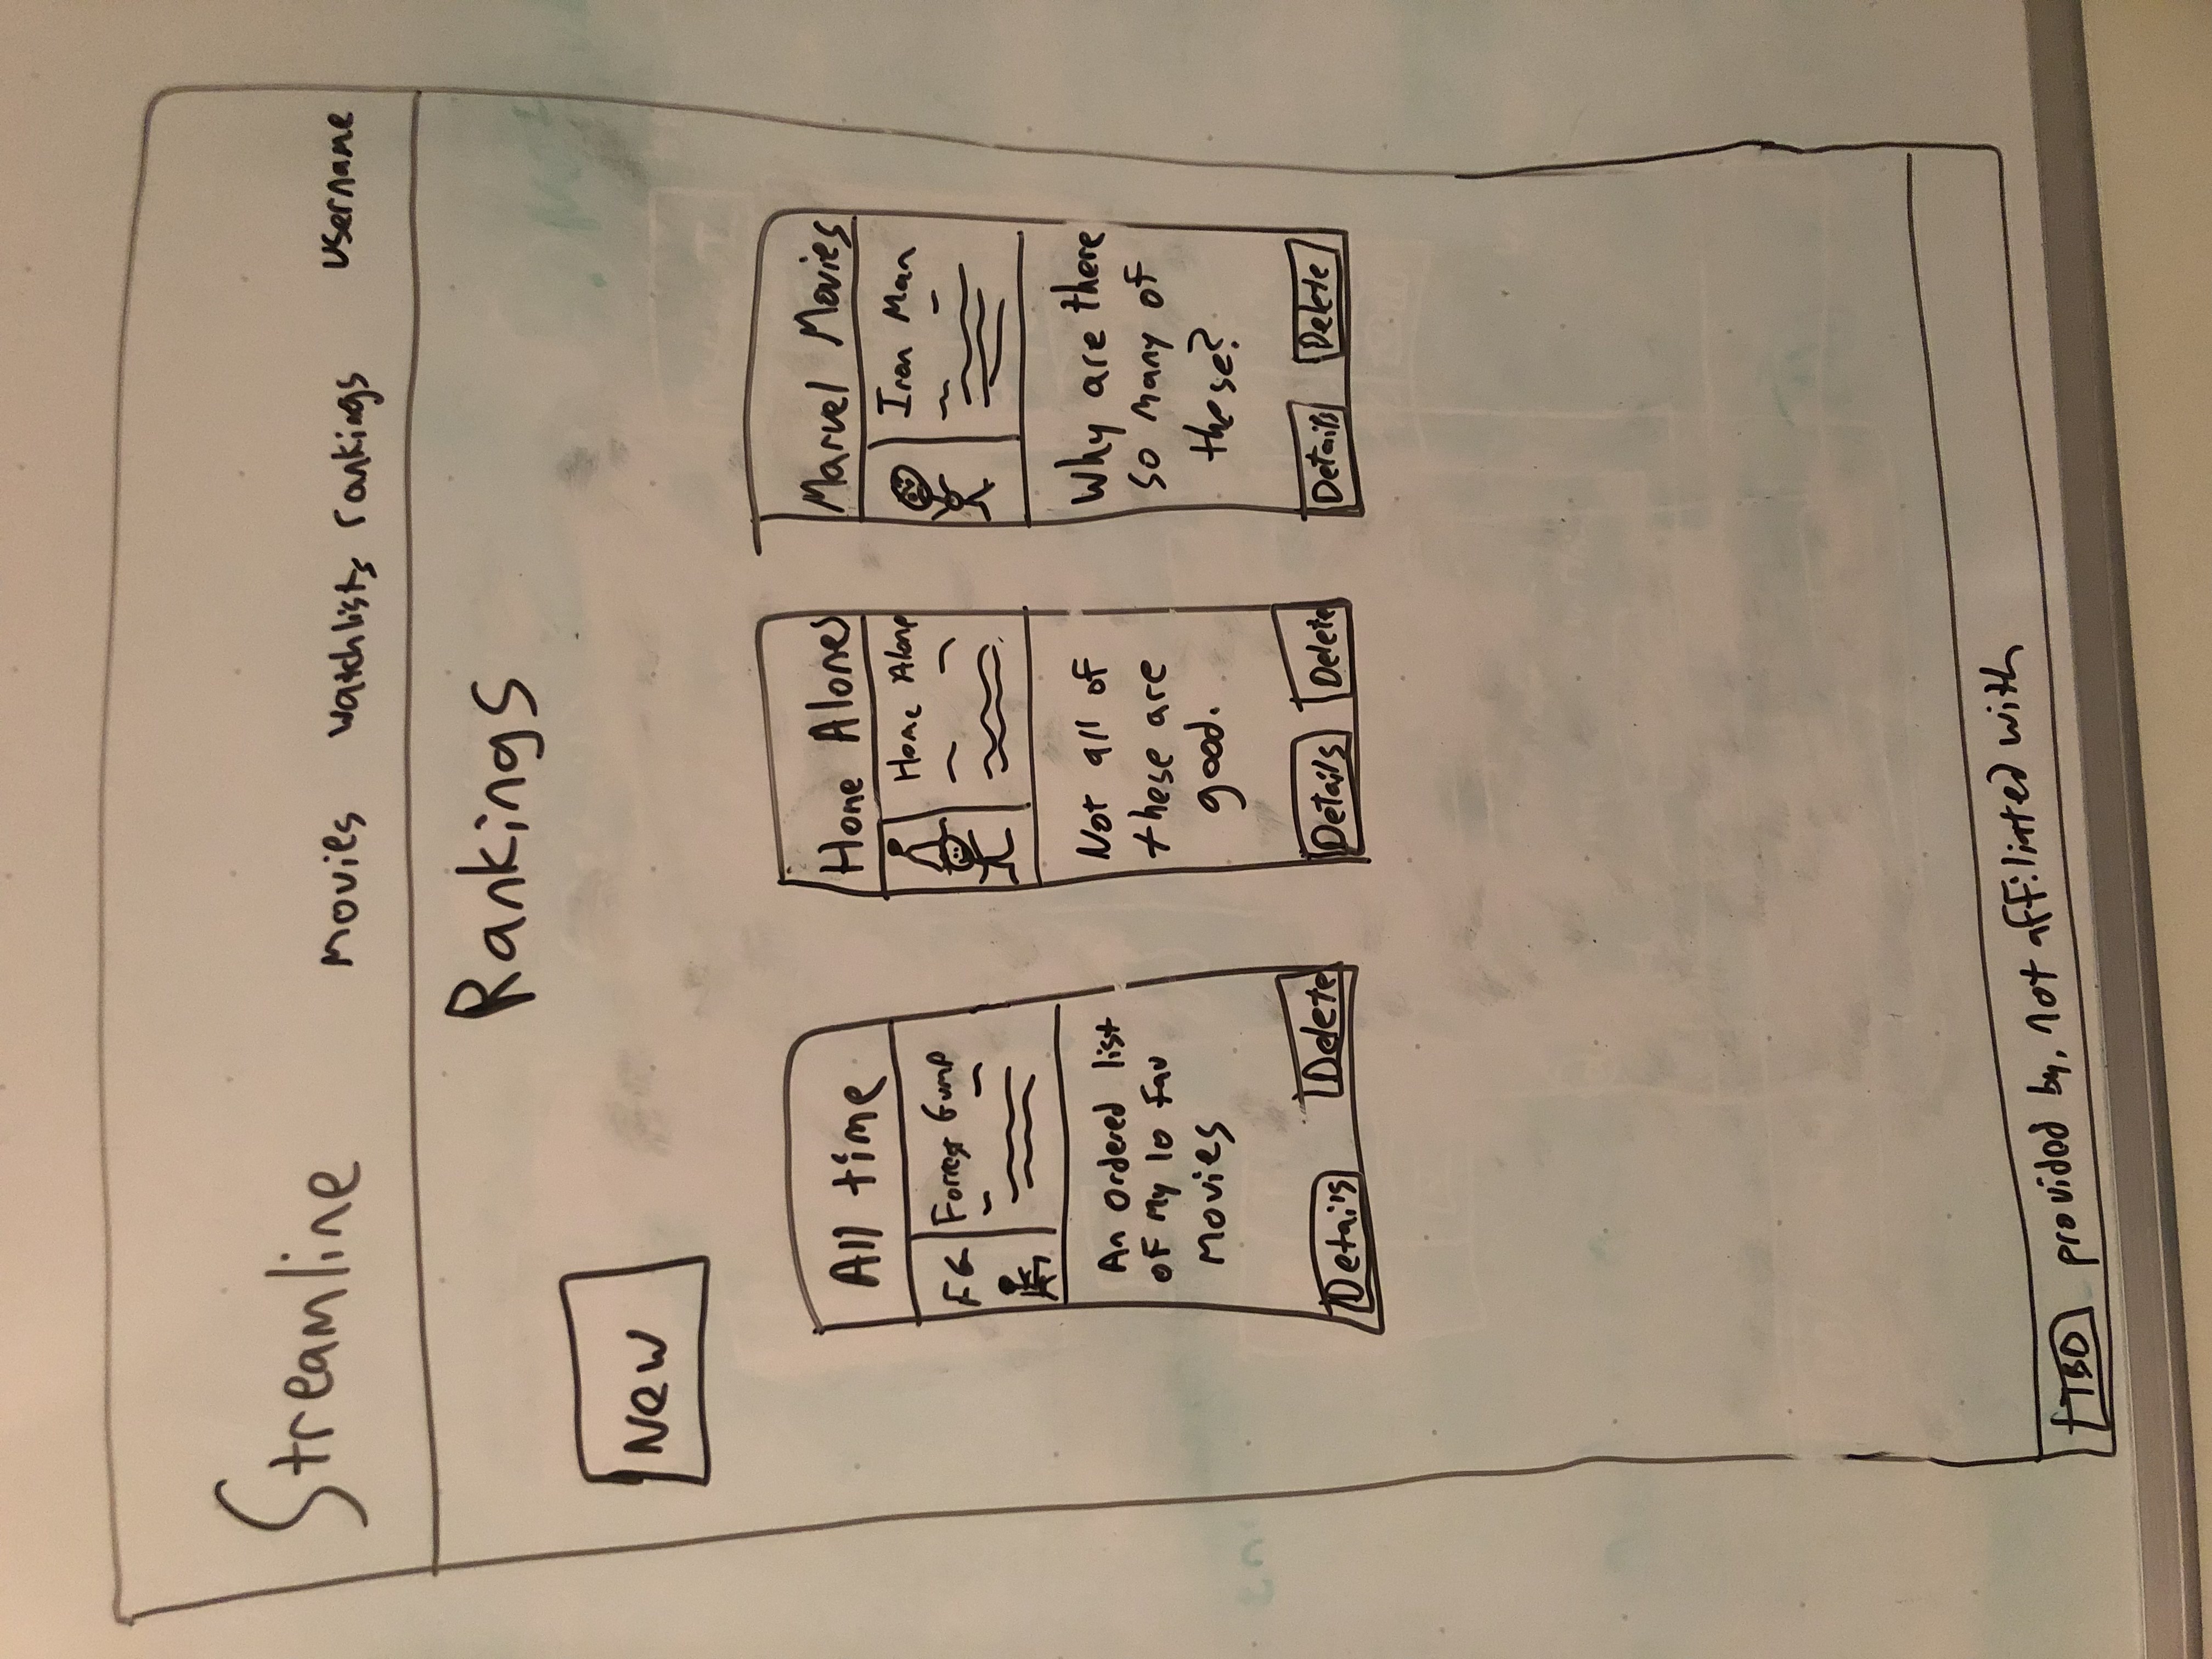 Streamline
movies watchlists rankings username
Rankings
New
All time
FG Forrest Gump
An ordered list
of my 10 fav
movies
Details Delete
Home Alones
Home Alone
Not all of
these are
good.
Details Delete
Marvel Movies
Iron Man
Why are there
so many of
these?
Details Delete
TBD provided by, not affiliated with